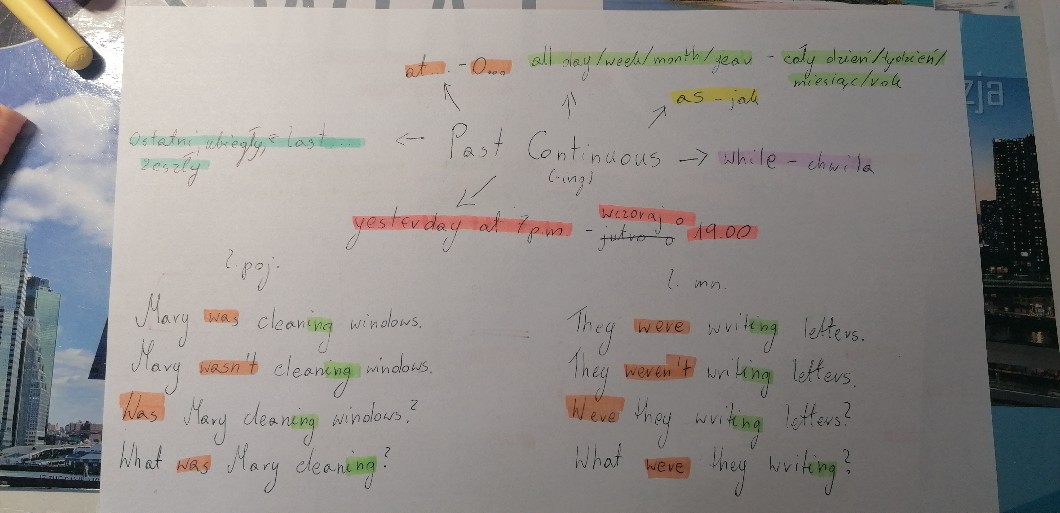 at... - o...
all day/week/month/year - cały dzień/tydzień/
miesiąc/rok
as - jak
ostatni, ubiegły, = last...
zeszły
← Past Continuous → while - chwila
(-ing)
yesterday at 7pm - wczoraj o jutro o 19.00
l. poj.
l. mn.
Mary was cleaning windows.
Mary wasn't cleaning windows.
Was Mary cleaning windows?
What was Mary cleaning?
They were writing letters.
They weren't writing letters.
Were they writing letters?
What were they writing?
zja